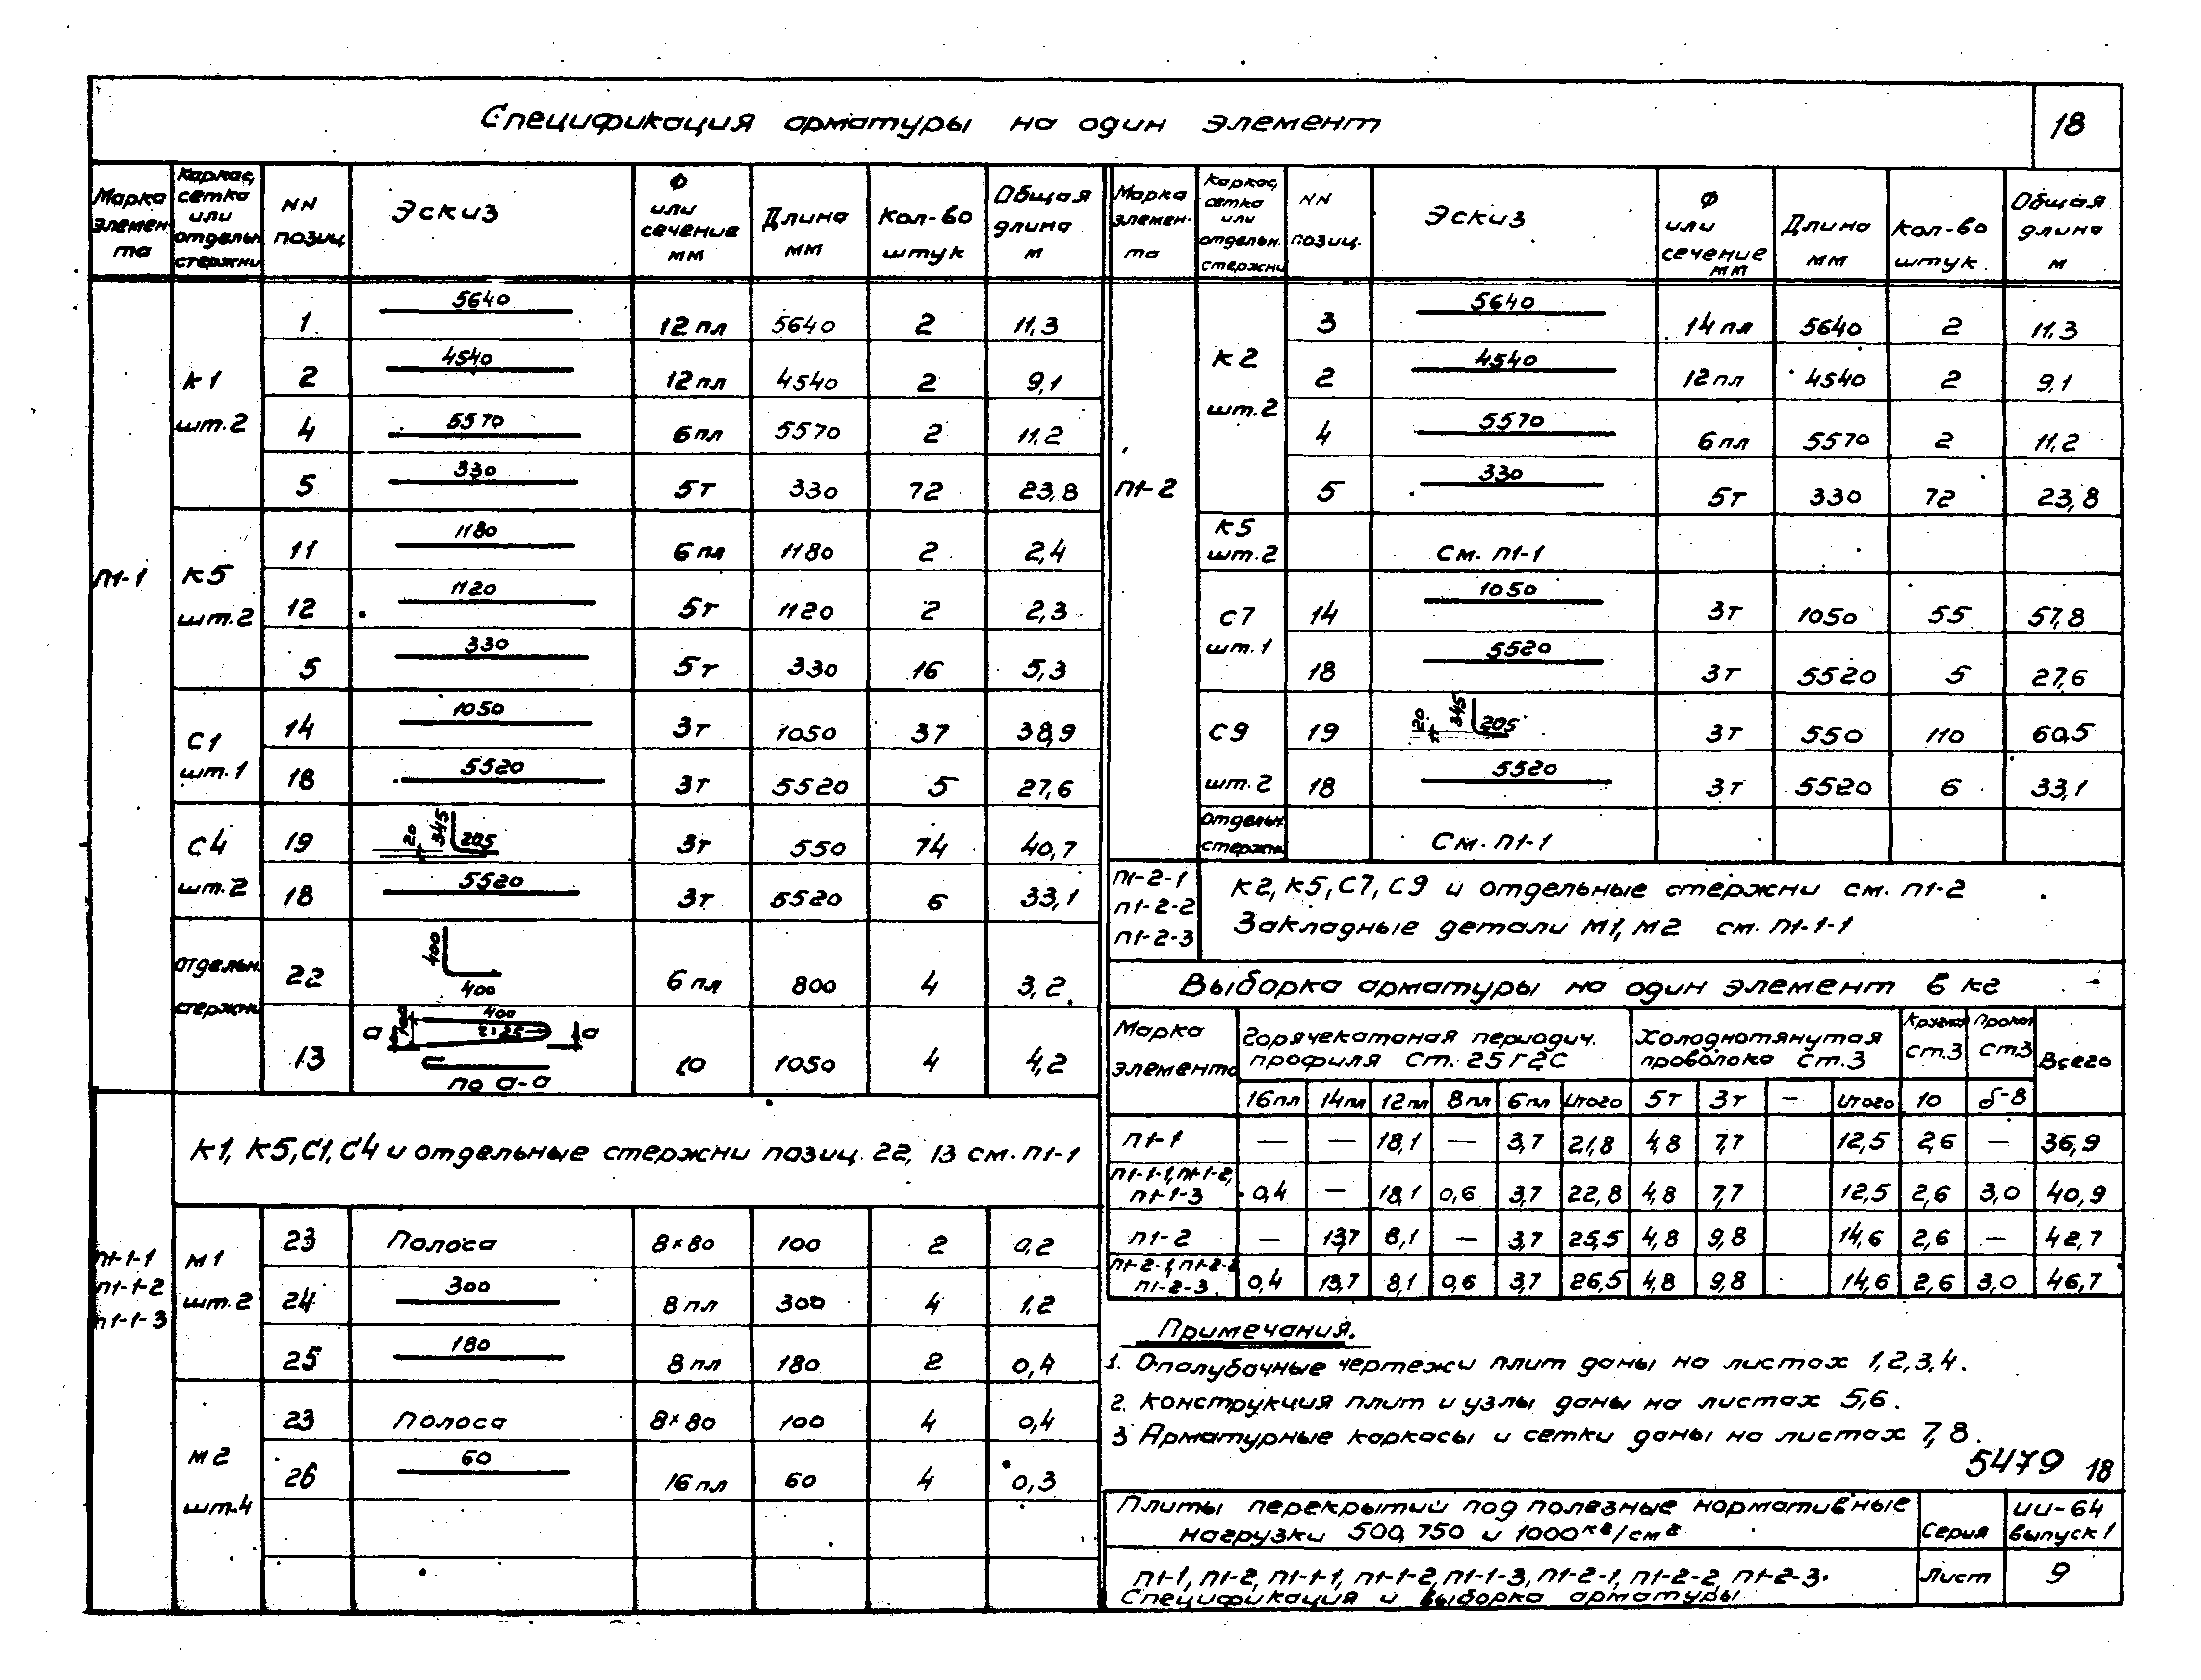 Спецификация арматуры на один элемент
18
Марка элемен та | Каркас, сетка или отдельн. стержни | NN позиц. | Эскиз | Ф или сечение мм | Длина мм | Кол-во штук | Общая длина м
П1-1
К1 шт.2
1 | 5640 | 12 пл | 5640 | 2 | 11,3
2 | 4540 | 12 пл | 4540 | 2 | 9,1
4 | 5570 | 6 пл | 5570 | 2 | 11,2
5 | 330 | 5т | 330 | 72 | 23,8
К5 шт.2
11 | 1180 | 6 пл | 1180 | 2 | 2,4
12 | 1120 | 5т | 1120 | 2 | 2,3
5 | 330 | 5т | 330 | 16 | 5,3
С1 шт.1
14 | 1050 | 3т | 1050 | 37 | 38,9
18 | 5520 | 3т | 5520 | 5 | 27,6
С4 шт.2
19 | 20 345 205 | 3т | 550 | 74 | 40,7
18 | 5520 | 3т | 5520 | 6 | 33,1
отдельн. стержни
22 | 400 400 | 6 пл | 800 | 4 | 3,2
13 | а 100 400 2=25 а по а-а | 10 | 1050 | 4 | 4,2
К1, К5, С1, С4 и отдельные стержни позиц. 22, 13 см. П1-1
П1-1-1
П1-1-2
П1-1-3
М1 шт.2
23 | Полоса | 8×80 | 100 | 2 | 0,2
24 | 300 | 8 пл | 300 | 4 | 1,2
25 | 180 | 8 пл | 180 | 2 | 0,4
М2 шт.4
23 | Полоса | 8×80 | 100 | 4 | 0,4
26 | 60 | 16 пл | 60 | 4 | 0,3
Марка элемен- та | Каркас, сетка или отдельн. стержни | NN позиц. | Эскиз | Ф или сечение мм | Длина мм | Кол-во штук. | Общая длина м
П1-2
К2 шт.2
3 | 5640 | 14 пл | 5640 | 2 | 11,3
2 | 4540 | 12 пл | 4540 | 2 | 9,1
4 | 5570 | 6 пл | 5570 | 2 | 11,2
5 | 330 | 5т | 330 | 72 | 23,8
К5 шт.2 | См. П1-1
С7 шт.1
14 | 1050 | 3т | 1050 | 55 | 57,8
18 | 5520 | 3т | 5520 | 5 | 27,6
С9 шт.2
19 | 20 345 205 | 3т | 550 | 110 | 60,5
18 | 5520 | 3т | 5520 | 6 | 33,1
отдельн. стержни | См. П1-1
П1-2-1
П1-2-2
П1-2-3
К2, К5, С7, С9 и отдельные стержни см. П1-2
Закладные детали М1, М2 см. П1-1-1
Выборка арматуры на один элемент в кг
Марка элемента | Горячекатаная периодич. профиля Ст. 25Г2С | Холоднотянутая проволока Ст.3 | Круглая Ст.3 | Прокат Ст3 | Всего
16пл | 14пл | 12пл | 8пл | 6пл | Итого | 5т | 3т | — | Итого | 10 | δ-8
П1-1 | — | — | 18,1 | — | 3,7 | 21,8 | 4,8 | 7,7 | 12,5 | 2,6 | — | 36,9
П1-1-1, П1-1-2, П1-1-3 | 0,4 | — | 18,1 | 0,6 | 3,7 | 22,8 | 4,8 | 7,7 | 12,5 | 2,6 | 3,0 | 40,9
П1-2 | — | 13,7 | 8,1 | — | 3,7 | 25,5 | 4,8 | 9,8 | 14,6 | 2,6 | — | 42,7
П1-2-1, П1-2-2 П1-2-3 | 0,4 | 13,7 | 8,1 | 0,6 | 3,7 | 26,5 | 4,8 | 9,8 | 14,6 | 2,6 | 3,0 | 46,7
Примечания.
1. Опалубочные чертежи плит даны на листах 1,2,3,4.
2. Конструкция плит и узлы даны на листах 5,6.
3 Арматурные каркасы и сетки даны на листах 7,8.
5479 18
Плиты перекрытий под полезные нормативные
нагрузки 500, 750 и 1000 кг/см²
Серия
ИИ-64
выпуск 1
П1-1, П1-2, П1-1-1, П1-1-2, П1-1-3, П1-2-1, П1-2-2, П1-2-3.
Спецификация и выборка арматуры
Лист
9